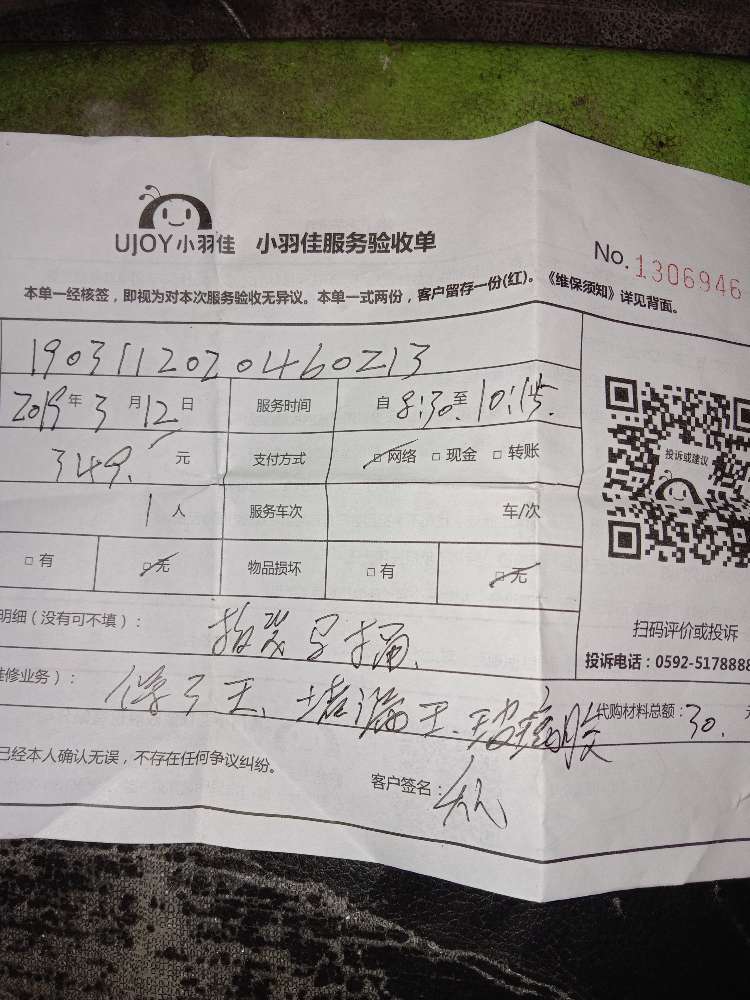 UJOY小羽佳 小羽佳服务验收单
No. 1306946
本单一经核签，即视为对本次服务验收无异议。本单一式两份，客户留存一份(红)。《维保须知》详见背面。
1903112020460213
2019年3月12日 服务时间 自8:30至10:15.
349.元 支付方式 □网络 □现金 □转账
1人 服务车次 车/次
□有 □无 物品损坏 □有 □无
投诉或建议
扫码评价或投诉
投诉电话：0592-5178888
明细（没有可不填）：
维修业务）： 堵漏王、 代购材料总额：30.
已经本人确认无误，不存在任何争议纠纷。
客户签名：